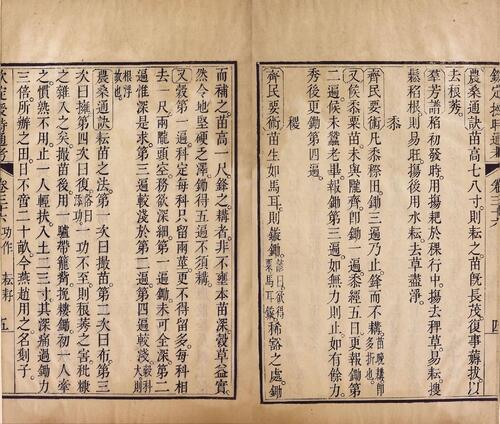 四
農桑通訣苗高七八寸則耘之苗旣長茂復事薅拔以
去稂莠
羣芳譜稻初發時用揚耙於稞行中揚去稗草易耘搜
鬆稻根則易旺揚後用水耘去草盡淨
黍
齊民要術凡黍穄田鋤三遍乃止鋒而不耩苗晚耩即多折也
又候黍粟苗未與壟齊即鋤一遍黍經五日更報鋤第
二遍候未蠶老畢報鋤第三遍如無力則止如有餘力
秀後更鋤第四遍
稷
齊民要術苗生如馬耳則鏃鋤諺曰欲得穀馬耳鏃稀豁之處鋤
而補之苗高一尺鋒之耩者非不壅本苗深穀草益實
然令地堅硬乏澤鋤得五遍不須耩
又穀第一遍科定每科只留兩莖更不得留多每科相
去一尺兩壟頭空務欲深細第一遍鋤未可全深第二
遍惟深是求第三遍較淺於第二遍第四遍較淺穀科大則根浮故也
農桑通訣耘苗之法第一次曰撮苗第二次曰布第三
次曰擁第四次曰復俗曰添功一功不至則稂莠之害秕糠
之雜入之矣撮苗後用一驢帶籠觜挽耬鋤初一人牽
之慣熟不用止一人輕扶入土二三寸其深痛過鋤力
三倍所辦之田日不啻二十畝今燕趙用之名劐子
欽定授時通考 卷三十六 功作 耘耔 五